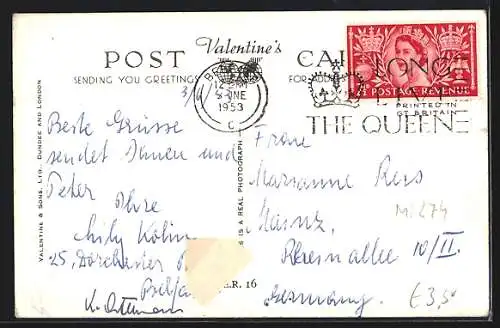 Valentine's
POST CA
SENDING YOU GREETINGS FOR
3/6
BE
12
JNE
1953
C
LONG
THE QUEEN
POSTAGE REVENUE
PRINTED IN
GT BRITAIN
VALENTINE & SONS, LTD., DUNDEE AND LONDON
IS A REAL PHOTOGRAPH
Beste Grüsse
sendet Ihnen und
Peter Ihre
Lily Kolin
25, Dorchester
Belfa
E.R. 16
Frau
Marianne Reis
Mainz,
Rheinallee 10/II.
Germany.
Mi 274
€ 3,5